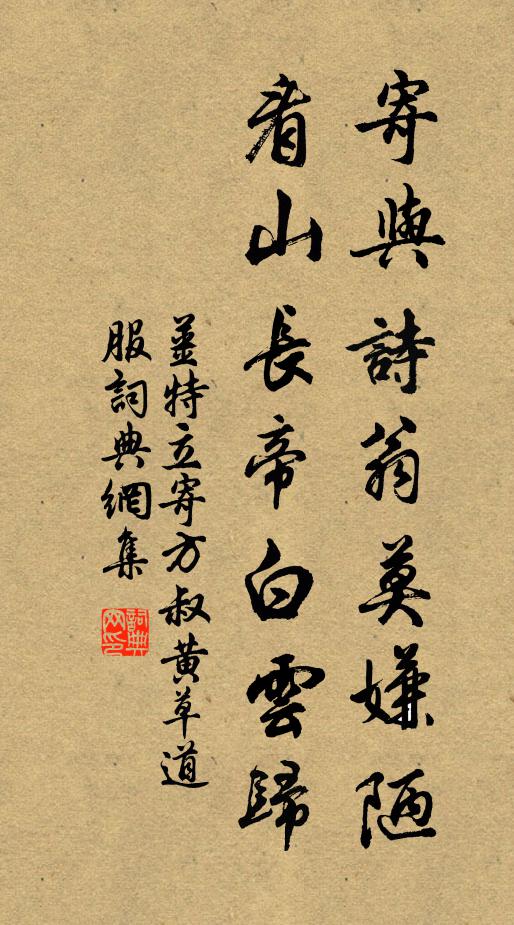 寄與詩翁莫嫌陋
看山長帝白雲歸
薑特立寄方叔黃草道
服詞典網集
詞典
网印